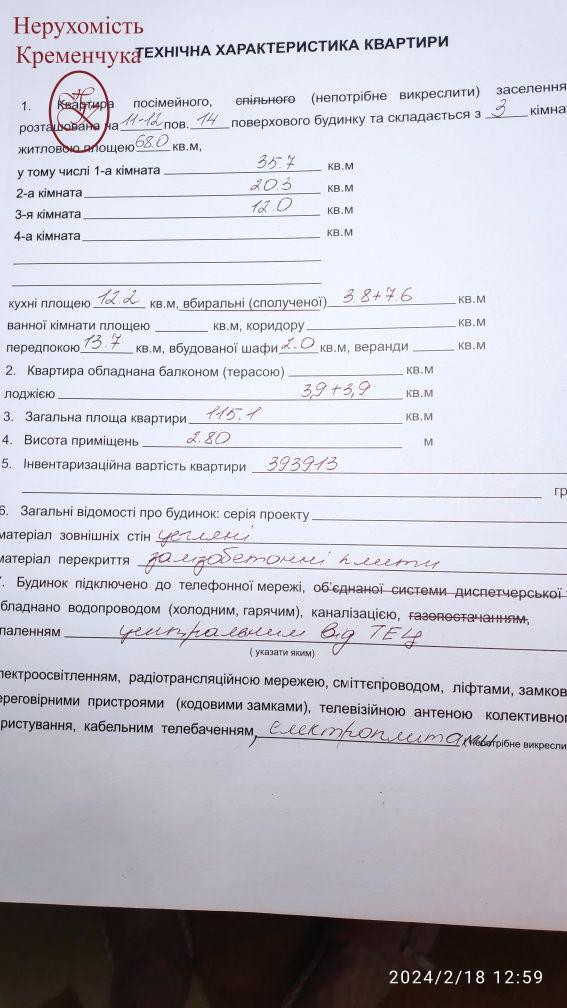 Нерухомість
Кременчука
ТЕХНІЧНА ХАРАКТЕРИСТИКА КВАРТИРИ
1. Квартира посімейного, спільного (непотрібне викреслити) заселення
розташована на 11-12 пов. 14 поверхового будинку та складається з 3 кімна
житловою площею 68.0 кв.м,
у тому числі 1-а кімната 35.7 кв.м
2-а кімната 20.3 кв.м
3-я кімната 12.0 кв.м
4-а кімната кв.м
кухні площею 12.2 кв.м, вбиральні (сполученої) 3.8+7.6 кв.м
ванної кімнати площею кв.м, коридору кв.м
передпокою 13.7 кв.м, вбудованої шафи 2.0 кв.м, веранди кв.м
2. Квартира обладнана балконом (терасою) кв.м
лоджією 3,9+3,9 кв.м
3. Загальна площа квартири 115.1 кв.м
4. Висота приміщень 2.80 м
5. Інвентаризаційна вартість квартири 393913
гр
6. Загальні відомості про будинок: серія проекту
матеріал зовнішніх стін цегляні
матеріал перекриття залізобетонні плити
7. Будинок підключено до телефонної мережі, об'єднаної системи диспетчерської
бладнано водопроводом (холодним, гарячим), каналізацією, газопостачанням,
паленням центральним від ТЕЦ
( указати яким)
лектроосвітленням, радіотрансляційною мережею, сміттєпроводом, ліфтами, замков
ереговірними пристроями (кодовими замками), телевізійною антеною колективног
ористування, кабельним телебаченням, електроплитами (непотрібне викресли
2024/2/18 12:59